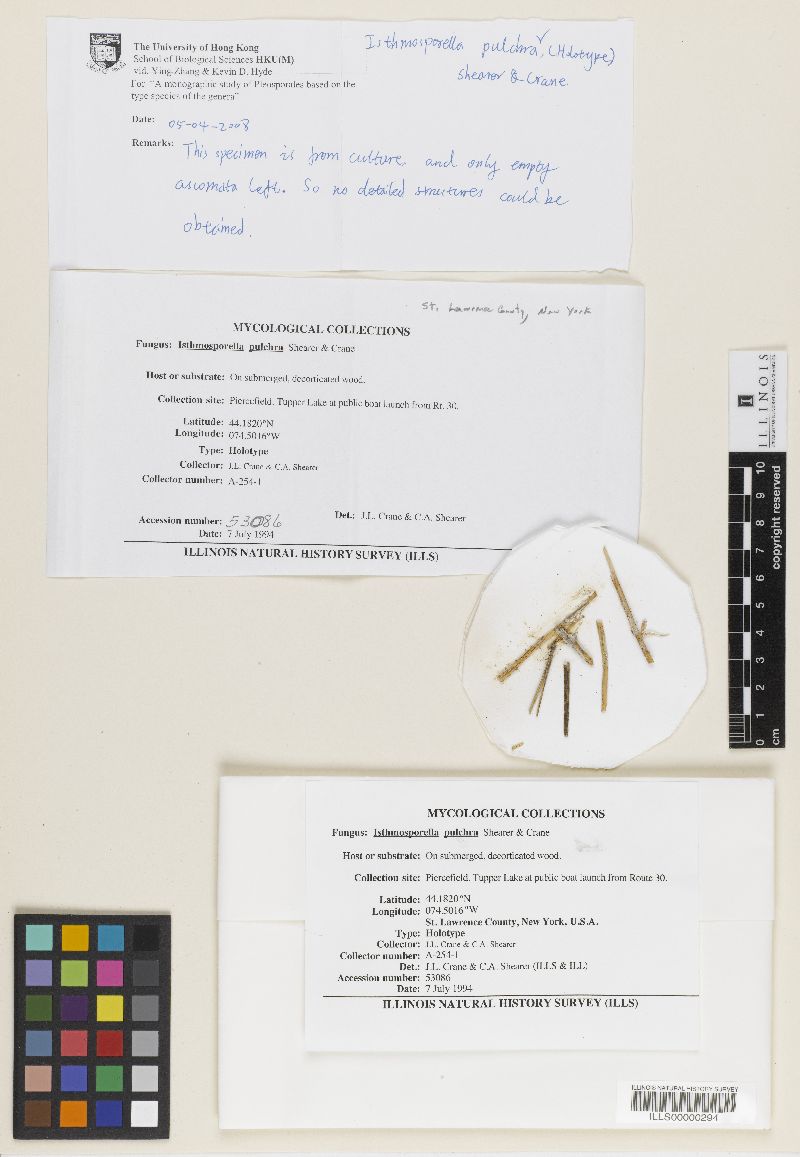 The University of Hong Kong
School of Biological Sciences HKU(M)
vid. Ying Zhang & Kevin D. Hyde
For "A monographic study of Pleosporales based on the
type species of the genera"
Isthmosporella pulchra, (Holotype)
Shearer & Crane.
Date: 05-04-2008
Remarks: This specimen is from culture, and only empty
ascomata left. So no detailed structures could be
obtained.
St. Lawrence County, New York
MYCOLOGICAL COLLECTIONS
Fungus: Isthmosporella pulchra Shearer & Crane
Host or substrate: On submerged, decorticated wood.
Collection site: Piercefield, Tupper Lake at public boat launch from Rt. 30.
Latitude: 44.1820°N
Longitude: 074.5016°W
Type: Holotype
Collector: J.L. Crane & C.A. Shearer
Collector number: A-254-1
Accession number: 53086
Det.: J.L. Crane & C.A. Shearer
Date: 7 July 1994
ILLINOIS NATURAL HISTORY SURVEY (ILLS)
ILLINOIS
copyright reserved
0 1 2 3 4 5 6 7 8 9 10
cm
MYCOLOGICAL COLLECTIONS
Fungus: Isthmosporella pulchra Shearer & Crane
Host or substrate: On submerged, decorticated wood.
Collection site: Piercefield, Tupper Lake at public boat launch from Route 30.
Latitude: 44.1820°N
Longitude: 074.5016°W
St. Lawrence County, New York, U.S.A.
Type: Holotype
Collector: J.L. Crane & C.A. Shearer
Collector number: A-254-1
Det.: J.L. Crane & C.A. Shearer (ILLS & ILL)
Accession number: 53086
Date: 7 July 1994
ILLINOIS NATURAL HISTORY SURVEY (ILLS)
ILLINOIS NATURAL HISTORY SURVEY
ILLS00000294